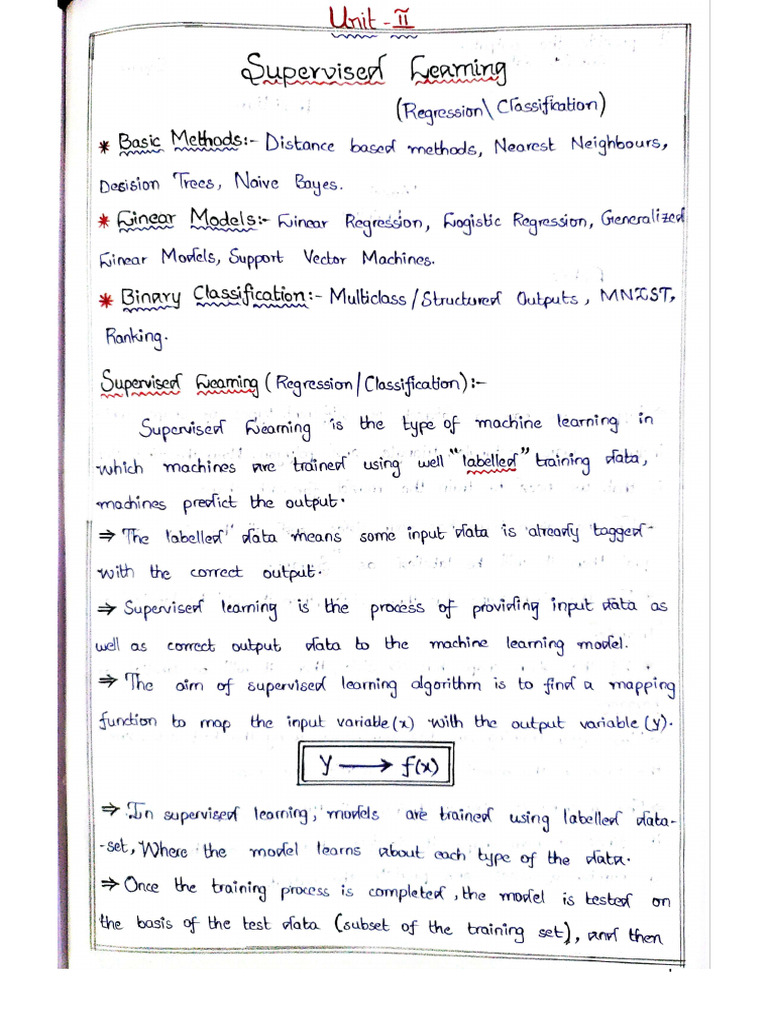 Unit - II
Supervised Learning
(Regression\ Classification)
* Basic Methods:- Distance based methods, Nearest Neighbours,
Decision Trees, Naive Bayes.
* Linear Models:- Linear Regression, Logistic Regression, Generalized
Linear Models, Support Vector Machines.
* Binary Classification:- Multiclass/Structured Outputs, MNIST,
Ranking.
Supervised Learning (Regression/Classification):-
Supervised Learning is the type of machine learning in
which machines are trained using well "labelled" training data,
machines predict the output.
⇒ The labelled" data means some input data is already tagged-
with the correct output.
⇒ Supervised learning is the process of providing input data as
well as correct output data to the machine learning model.
⇒ The aim of supervised learning algorithm is to find a mapping
function to map the input variable(x) with the output variable(y).
Y ⟶ f(x)
⇒ In supervised learning, models are trained using labelled data-
-set, Where the model learns about each type of the data.
⇒ Once the training process is completed, the model is tested on
the basis of the test data (subset of the training set), and then